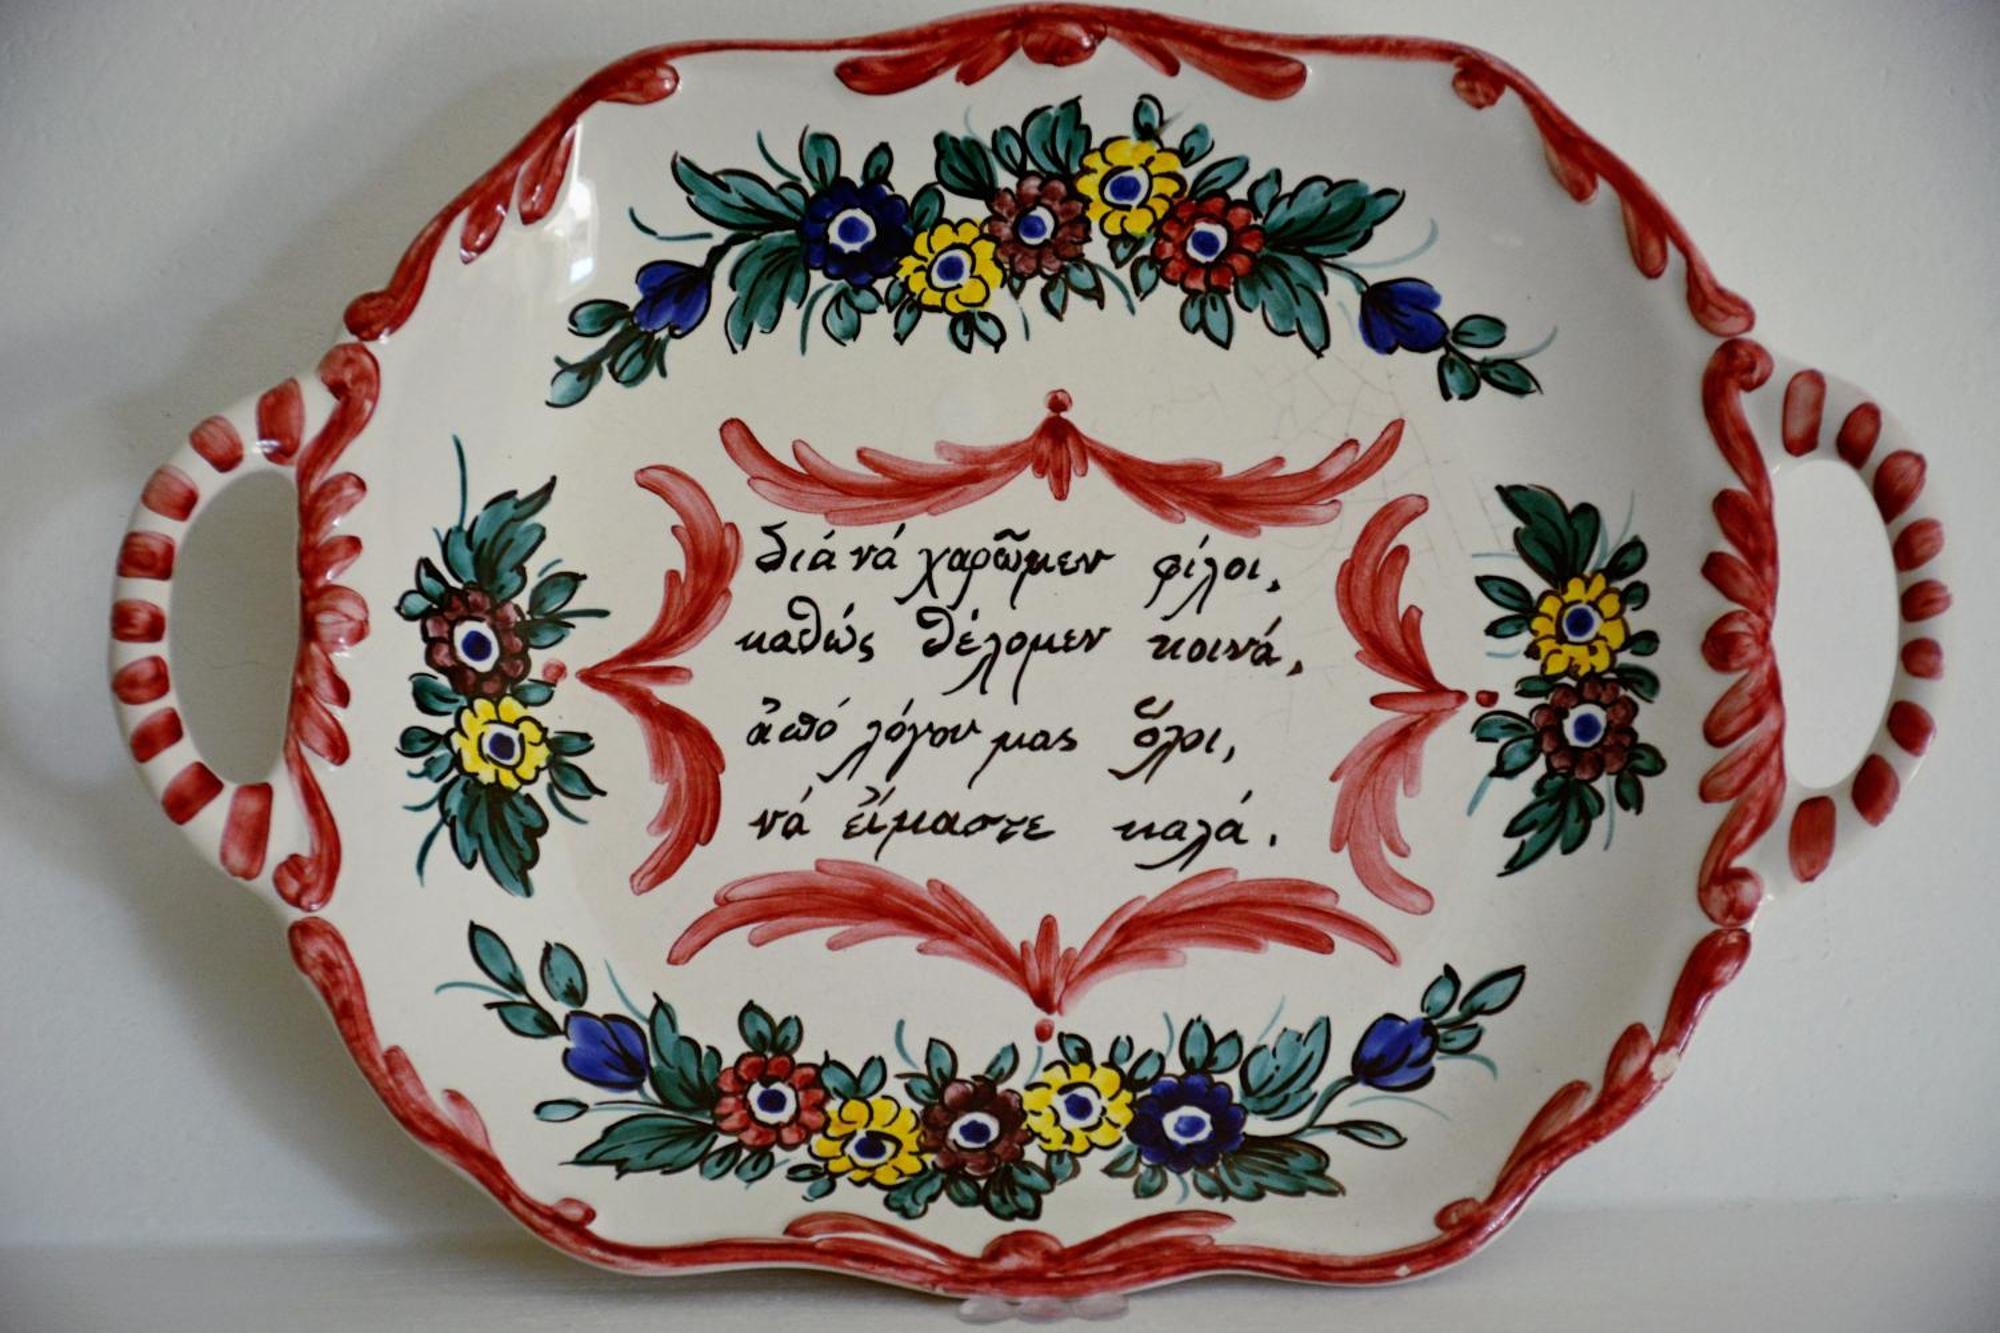 διά νά χαρῶμεν φίλοι,
καθώς θέλομεν κοινά,
ἀπό λόγου μας ὅλοι,
νά εἴμαστε καλά.